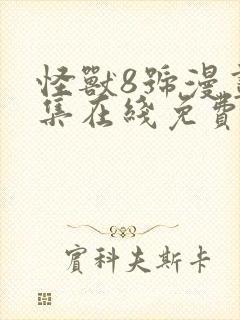 怪獸8號漫
集在綫免費
賓科夫斯卡